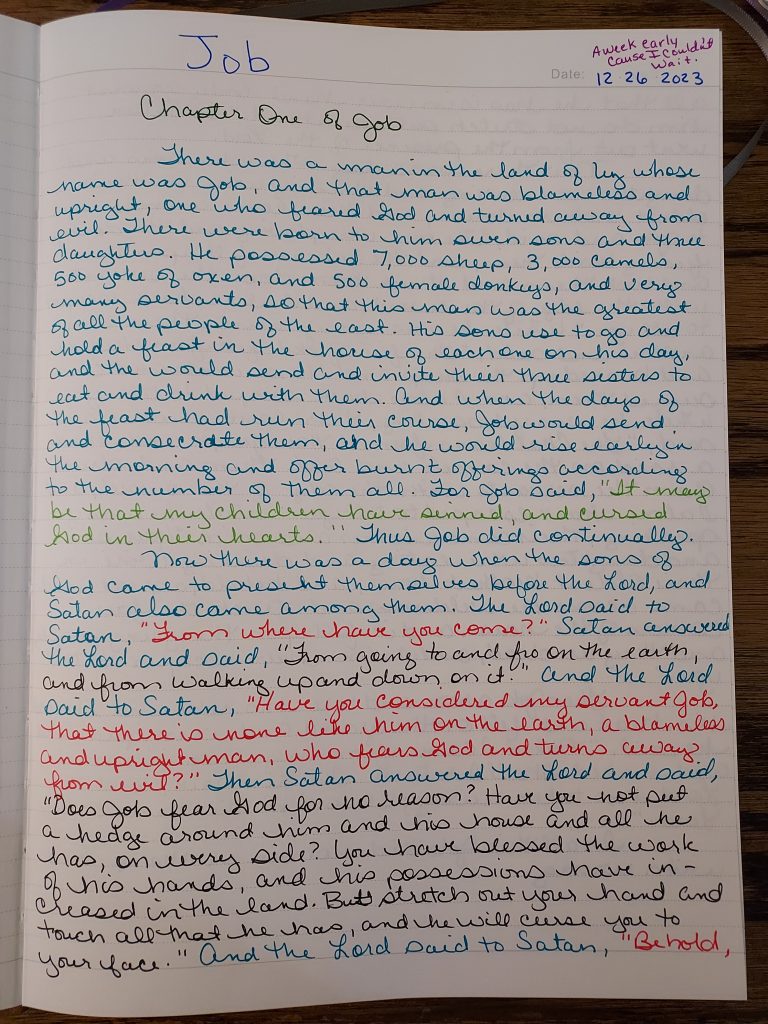 Job
A week early
cause I couldn't
wait.
Date: 12 26 2023
Chapter One of Job
There was a man in the land of Uz whose
name was Job, and that man was blameless and
upright, one who feared God and turned away from
evil. There were born to him seven sons and three
daughters. He possessed 7,000 sheep, 3,000 camels,
500 yoke of oxen, and 500 female donkeys, and very
many servants, so that this man was the greatest
of all the people of the east. His sons use to go and
hold a feast in the house of each one on his day,
and the would send and invite their three sisters to
eat and drink with them. And when the days of
the feast had run their course, Job would send
and consecrate them, and he would rise early in
the morning and offer burnt offerings according
to the number of them all. For Job said, "It may
be that my children have sinned, and cursed
God in their hearts." Thus Job did continually.
Now there was a day when the sons of
God came to present themselves before the Lord, and
Satan also came among them. The Lord said to
Satan, "From where have you come?" Satan answered
the Lord and said, "From going to and fro on the earth,
and from walking up and down on it." And the Lord
said to Satan, "Have you considered my servant Job,
that there is none like him on the earth, a blameless
and upright man, who fears God and turns away
from evil?" Then Satan answered the Lord and said,
"Does Job fear God for no reason? Have you not put
a hedge around him and his house and all he
has, on every side? You have blessed the work
of his hands, and his possessions have in-
creased in the land. But stretch out your hand and
touch all that he has, and he will curse you to
your face." And the Lord said to Satan, "Behold,